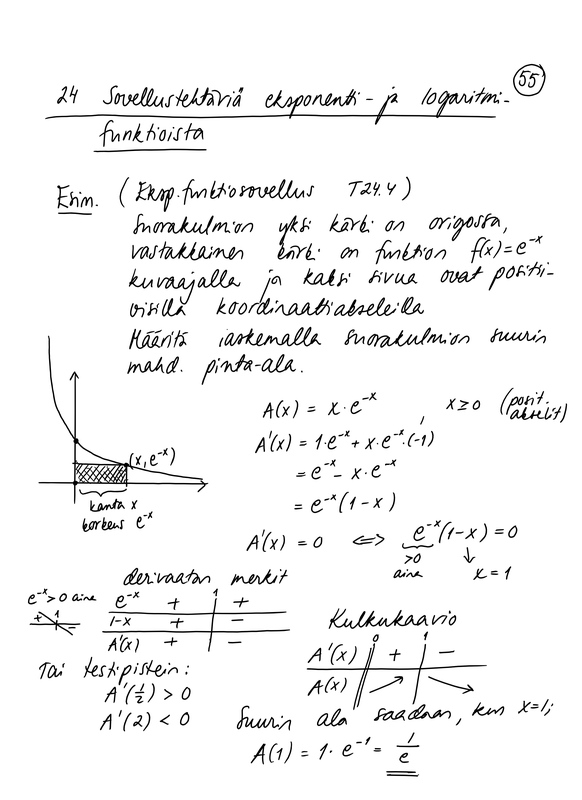 55
24 Sovellustehtäviä eksponentti- ja logaritmi-
funktioista
Esim. (Eksp.funktiosovellus T24.4)
Suorakulmion yksi kärki on origossa,
vastakkainen kärki on funktion f(x)=e⁻ˣ
kuvaajalla ja kaksi sivua ovat positii-
visilla koordinaattiakseleilla
Määritä laskemalla suorakulmion suurin
mahd. pinta-ala.
A(x) = x·e⁻ˣ , x≥0 (posit. akselit)
A'(x) = 1·e⁻ˣ + x·e⁻ˣ·(-1)
= e⁻ˣ - x·e⁻ˣ
= e⁻ˣ(1-x)
(x, e⁻ˣ)
kanta x
korkeus e⁻ˣ
A'(x) = 0 ⟺ e⁻ˣ(1-x) = 0
>0 ↓
aina x = 1
derivaatan merkit
e⁻ˣ>0 aina
+ 1 -
1
e⁻ˣ + +
1-x + -
A'(x) + -
Tai testipistein:
A'(½) > 0
A'(2) < 0
Kulkukaavio
0 1
A'(x) + -
A(x) ↗ ↘
Suurin ala saadaan, kun x=1;
A(1) = 1·e⁻¹ = 1/e